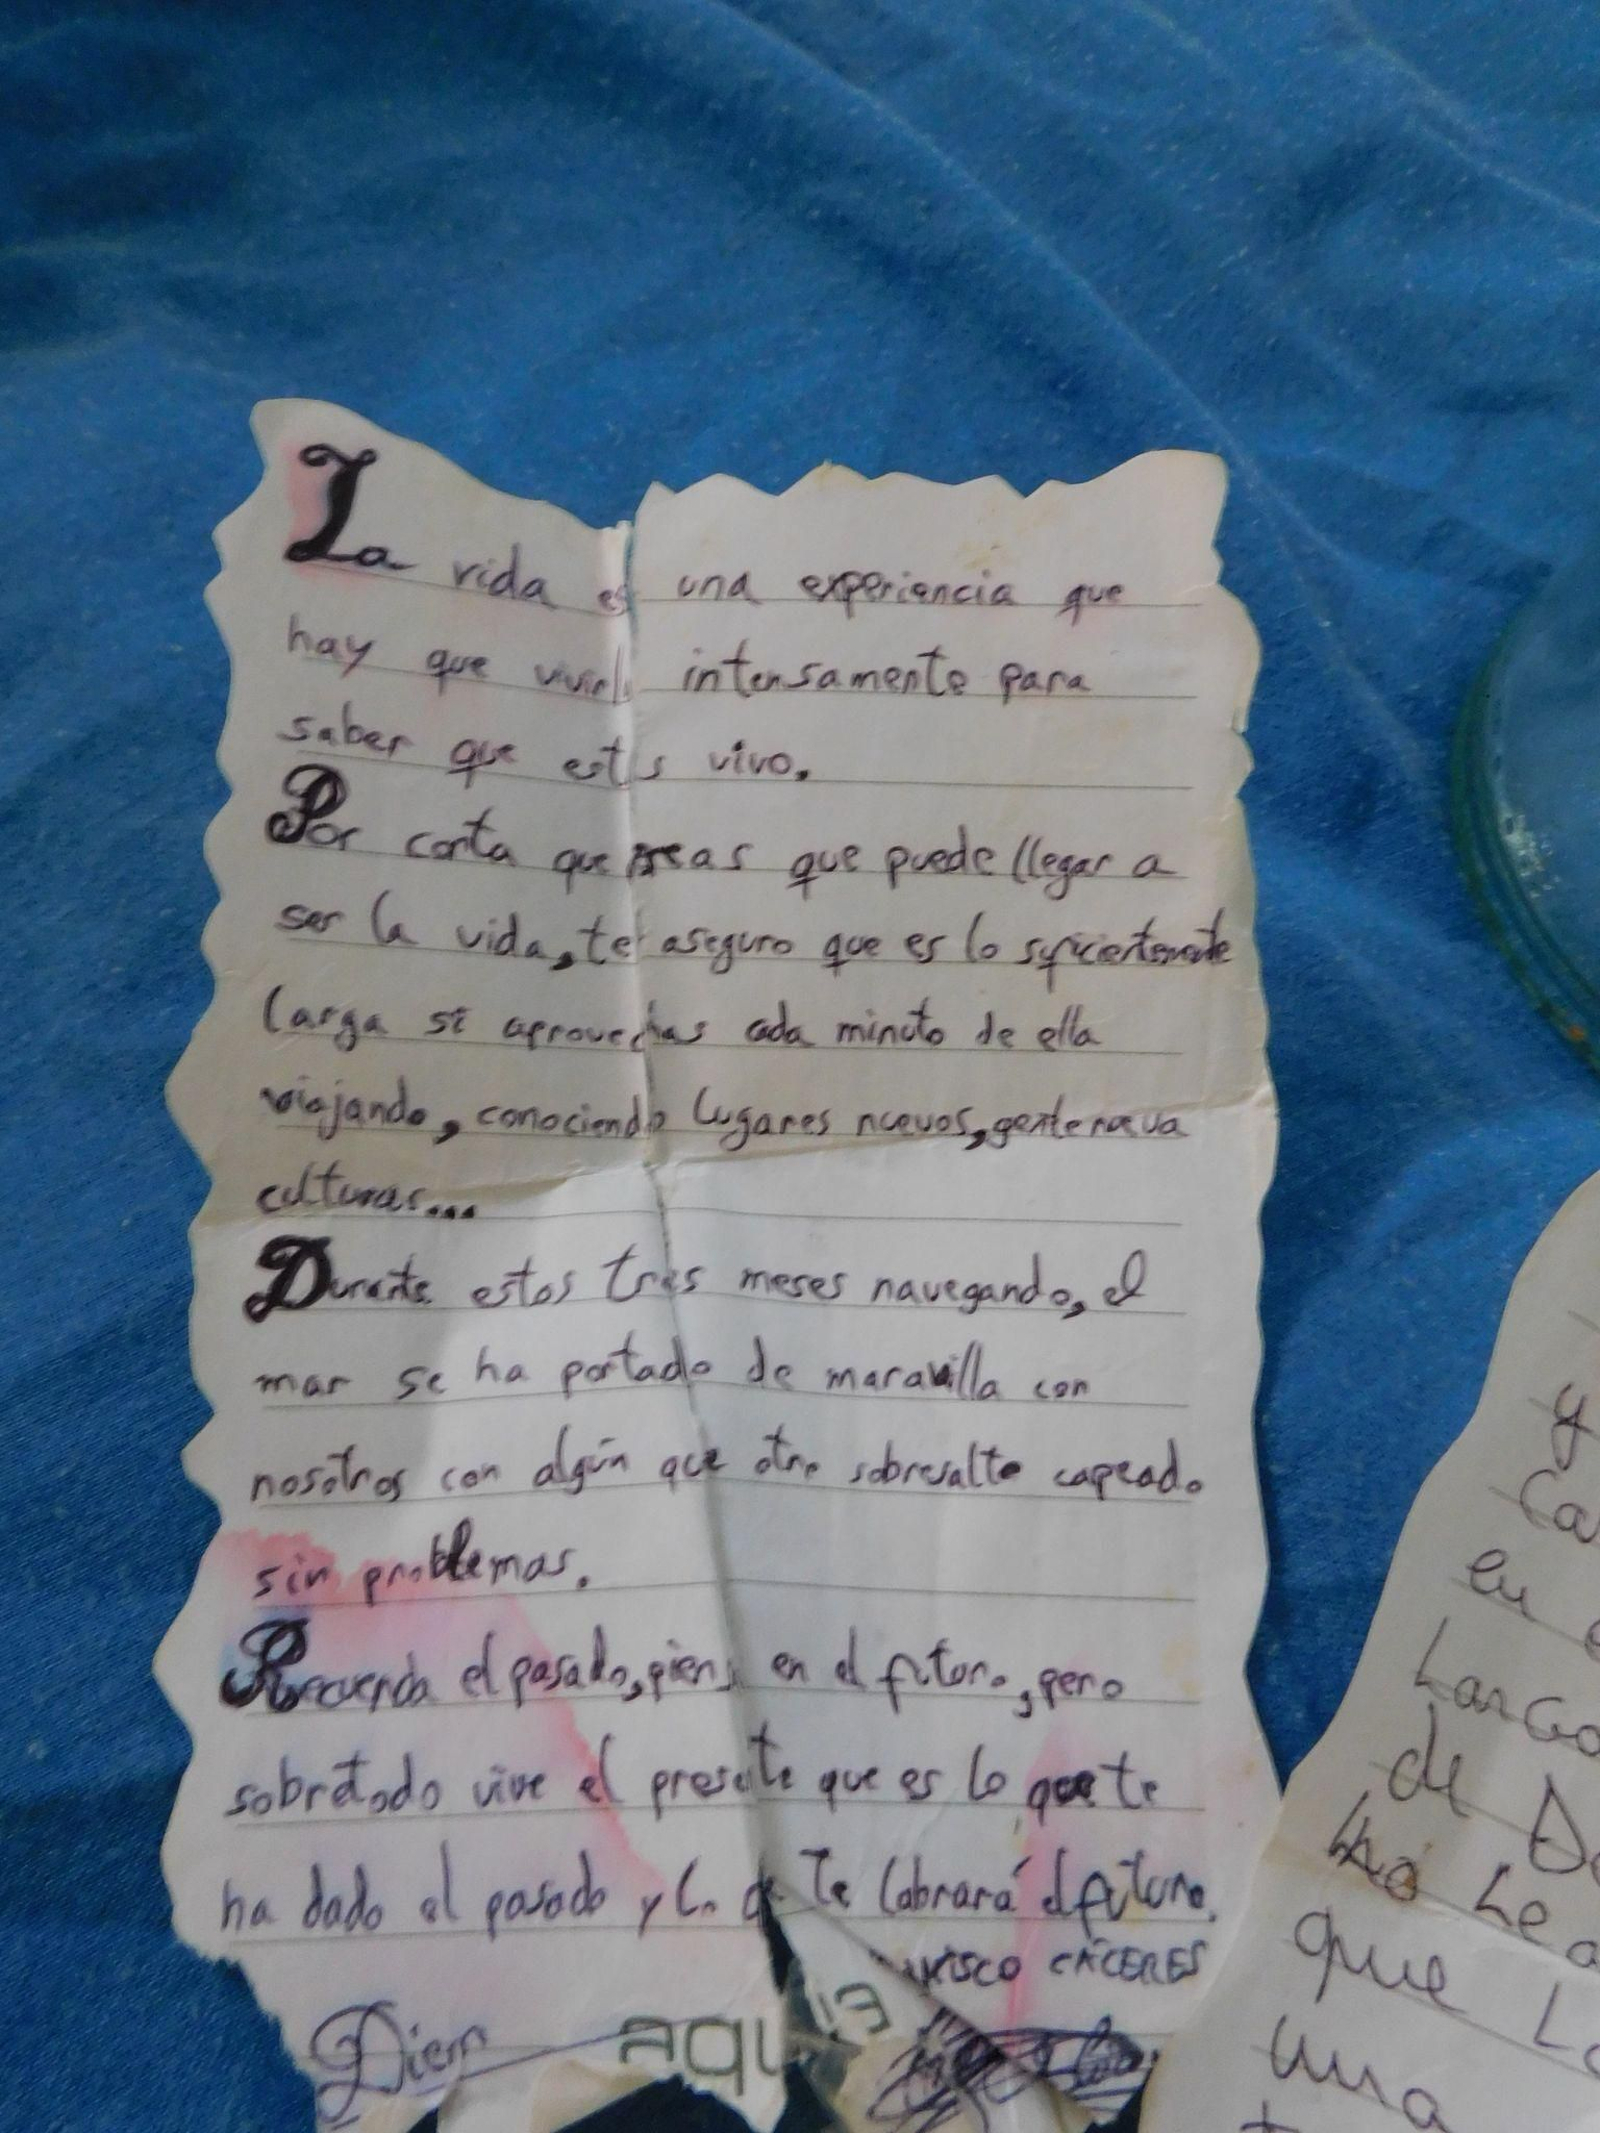 La vida es una experiencia que
hay que vivirla intensamente para
saber que estás vivo.
Por corta que veas que puede llegar a
ser la vida, te aseguro que es lo suficientemente
larga si aprovechas cada minuto de ella
viajando, conociendo lugares nuevos, gente nueva
culturas...
Durante estos tres meses navegando, el
mar se ha portado de maravilla con
nosotros con algún que otro sobresalto capeado
sin problemas.
Recuerda el pasado, piensa en el futuro, pero
sobretodo vive el presente que es lo que te
ha dado el pasado y lo que te labrará el futuro.
CÁCERES
aqu
y
en
de
no Le
que Lo
una